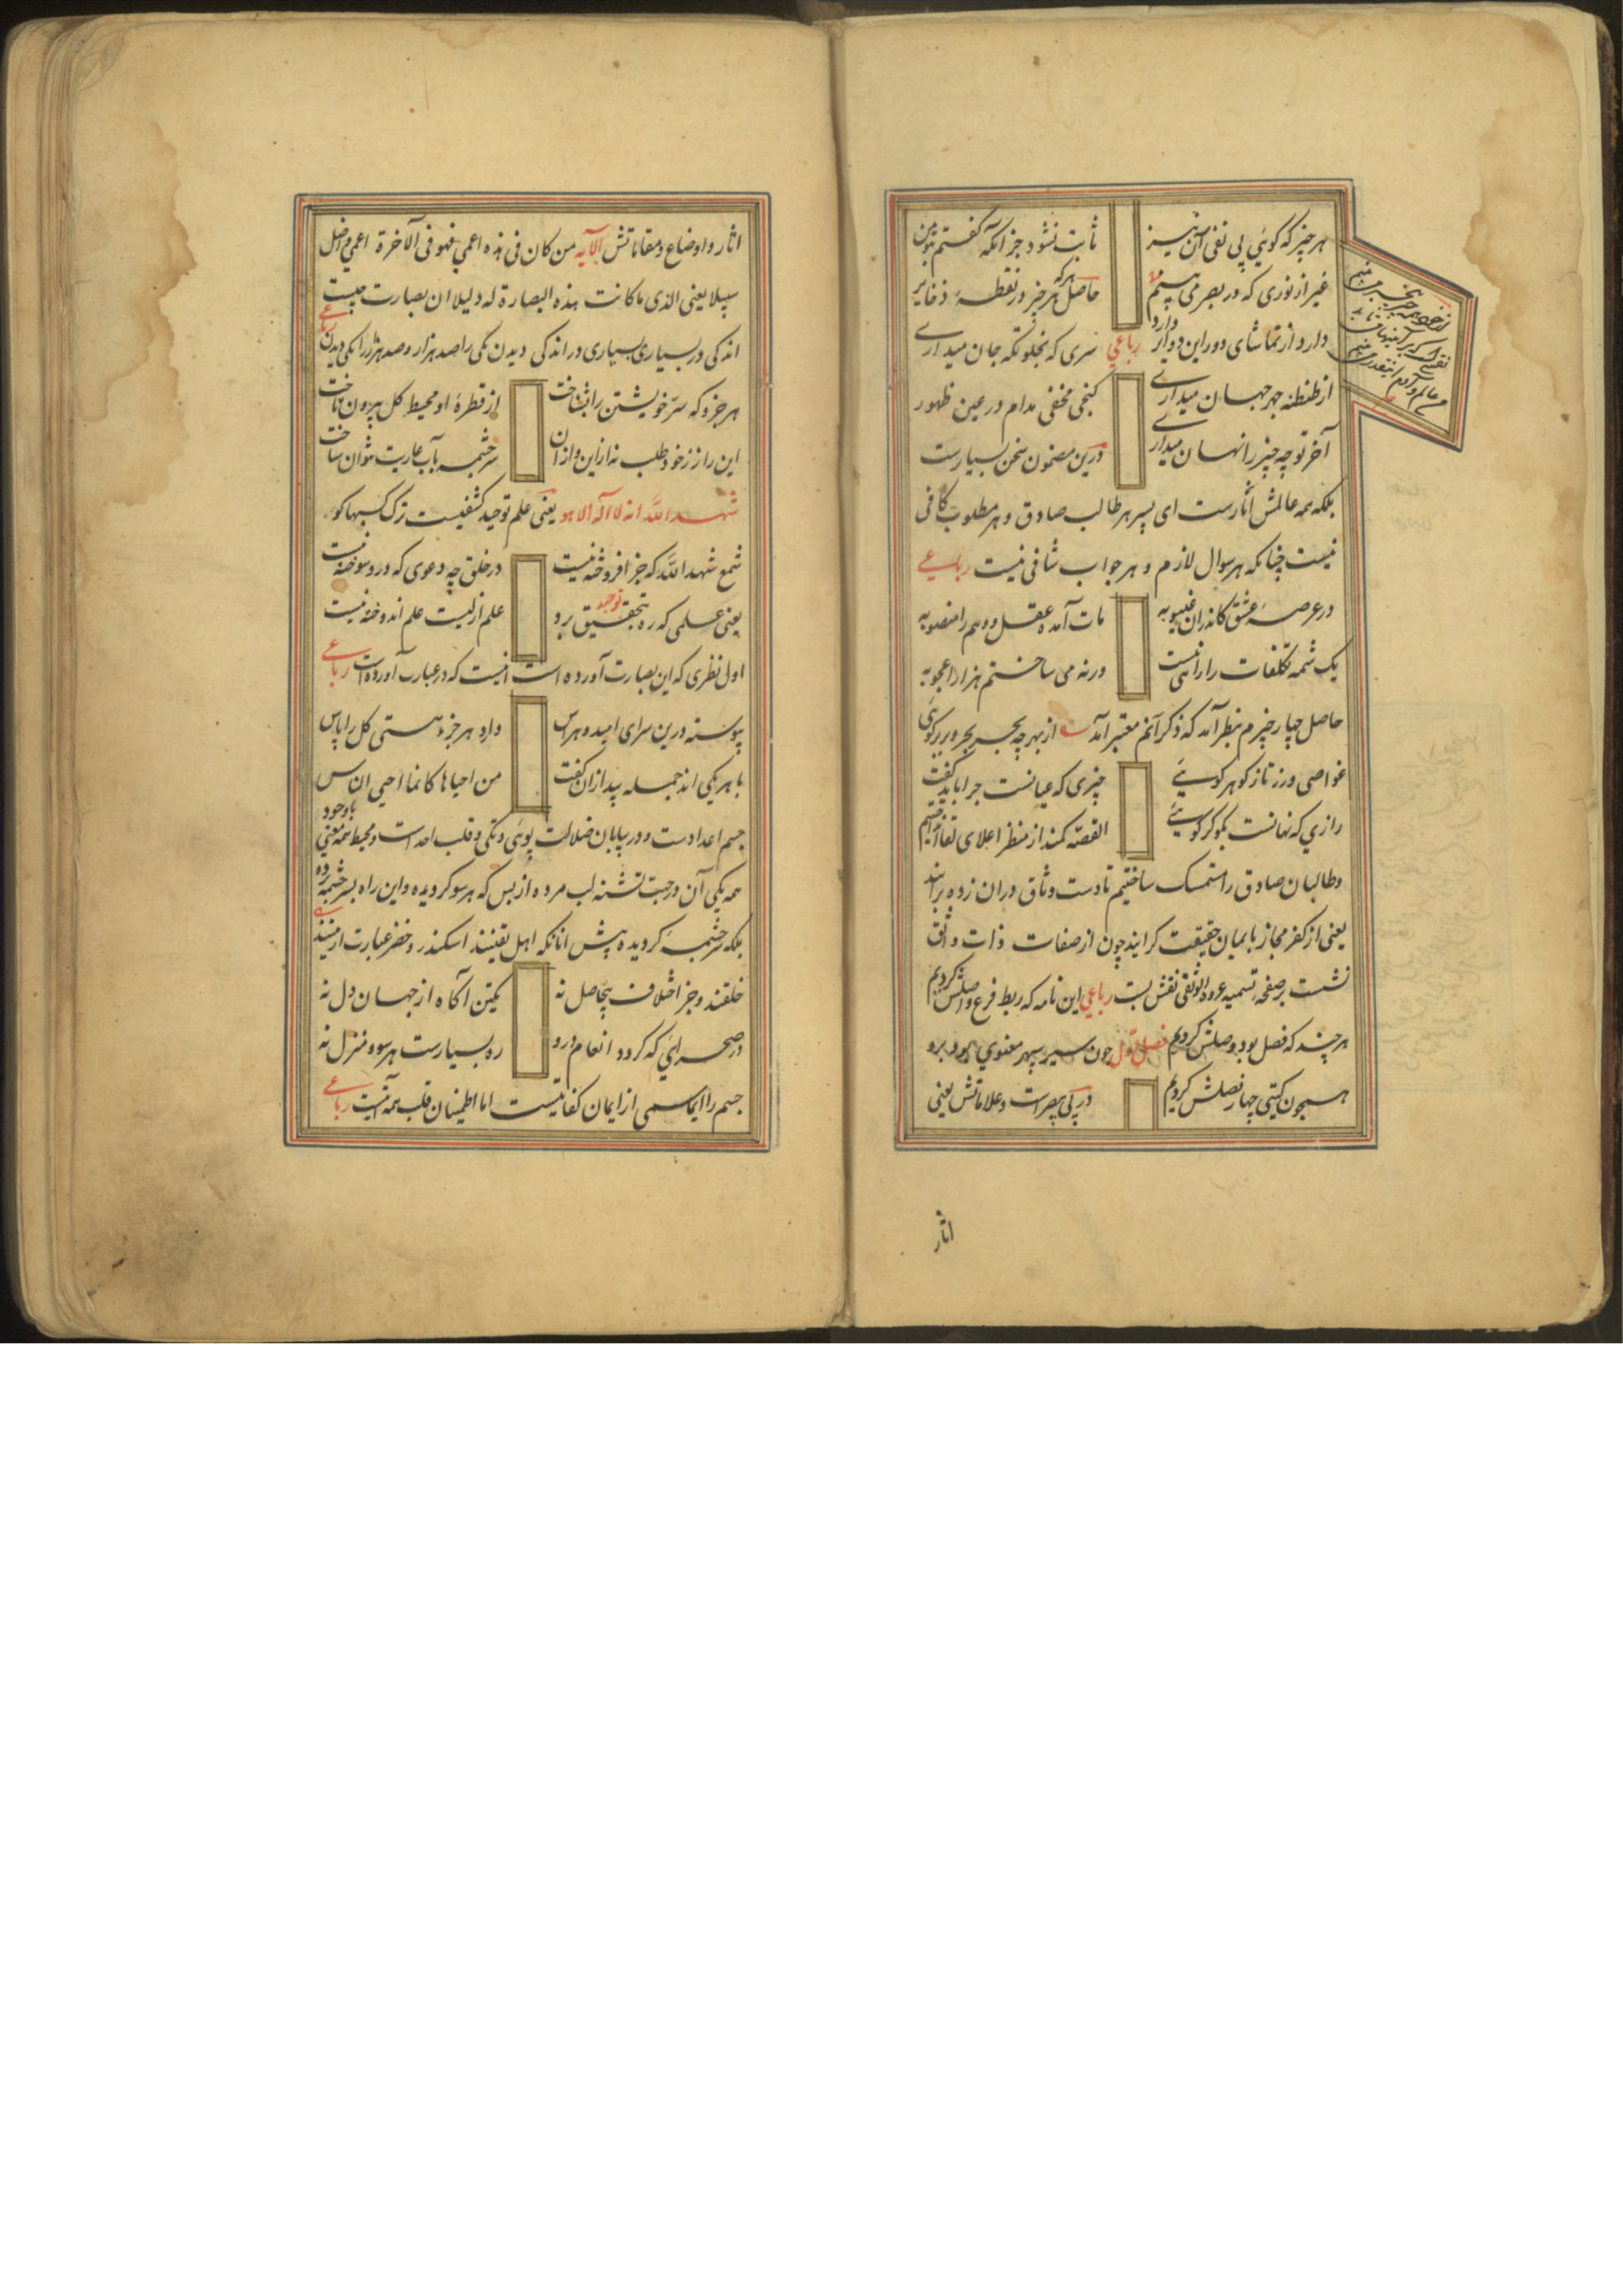 هر چیز که کوئی پی نفی آن نیز ثابت نشود جز آنکه کفتم بتو من
غیر از نوری که در بصر می بینم حاصل هر جز در نقطهٔ ذخایر
دارد از تماشای دور این دوایر رباعی سری که بخلوتکه جان میداری
از طنطنه جهر جهان میداری کنجی مخفی مدام در عین ظهور
آخر تو چه چیز را نهان میداری درین مضمون سخن بسیارست
بلکه همه عالمش آثارست ای پسر هر طالب صادق و هر مطلوب کافی
نیست چنانکه هر سوال لازم و هر جواب شافی نیست رباعی
در عرصهٔ عشق کاندران غیبوبه مات آمده عقل و وهم را منصوبه
یک شمه تکلفات را راه نیست ورنه می ساختم هزار اعجوبه
حاصل چهار چیزم بنظر آمد که ذکر آنم معتبر آمد از بهر چه بحر بحر و بر بر کوئی
غواصی ورز تاز کوهر کوئی چیزی که عیانست چرا باید کفت
رازی که نهانست بکو کر کوئی القصه کمند از منظر اعلای لقا
وطالبان صادق را مستمسک ساختیم تا دست وثاق دران زده برایند
یعنی از کفر مجاز بایمان حقیقت کرایند چون از صفات ذات واثق
نشست بر صفحه تسمیه عروة الوثقی نقش بست رباعی این نامه که ربط فرع و اصلش کردیم
هر چند که فصل بود وصلش کردیم فصل اول چون سیر سپهر معنوی بود برو
همچون کیتی چهار فصلش کردیم در پی بصر است و علاماتش یعنی
اثار
اثار و اوضاع و مقاماتش الآیه من کان فی هذه اعمی فهو فی الآخرة اعمی و اضل
سبیلا یعنی الذی ما کانت هذه البصارة له دلیلا ان بصارت چیست
اندکی در بسیاری بسیاری در اندکی دیدن یکی را صد هزار و صد هزار را یکی دیدن رباعی
هر جزو که سر خویشتن را بشناخت از قطرهٔ او محیط کل بیرون تاخت
این راز ز خود طلب نه از این و از ان سرچشمه بآب عاریت نتوان ساخت
شهد الله انه لا اله الا هو یعنی علم توحید کشفیست ترک کسبها کو
شمع شهد الله که جز افروخته نیست در خلق چه دعوی که درو سوخته نیست
یعنی علمی که ره بتحقیق توحید برد علم ازلیست علم اندوخته نیست
اول نظری که این بصارت آورده است اینست که در عبارت آورده است رباعی
پیوسته درین سرای امید و هراس دارد هر جزء هستی کل را پاس
با هر یکی اند جمله پیدا زان کفت من احیاها کانما احیی الناس
جسم اعدادست و در بیابان ضلالت پوئی و تکی و قلب احد است و محیط همه معنی با وجود
همه یکی آن در جست تشنه لب مرده از بس که هر سو کردیده و این راه بسرچشمه برده
بلکه سرچشمه کردیده پیش انانکه اهل یقینند اسکندر و خضر عبارت ازینند
خلقند و جز اختلاف بیحاصل نه یکتن آکاه از جهان دل نه
در صحرائی که کردد انعام درو ره بسیارست هر سو و منزل نه
جسم را ایما سمی از ایمان کفایتست اما اطمینان قلب همه آنست رباعی